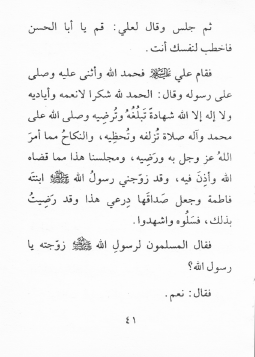 ثم جلس وقال لعلي: قم يا أبا الحسن
فاخطب لنفسك أنت.
فقام علي ﷺ فحمد الله وأثنى عليه وصلى
على رسوله وقال: الحمد لله شكرا لانعمه وأياديه
ولا إله إلا الله شهادةً تَبلُغُهُ وتُرضِيه وصلى الله على
محمد وآله صلاة تُزلفه وتُحظِيه، والنكاحُ مما أمرَ
اللهُ عز وجل به ورَضِيه، ومجلسنا هذا مما قضاه
الله وأذِنَ فيه، وقد زوّجني رسولُ الله ﷺ ابنتَه
فاطمةَ وجعل صَداقَها دِرعي هذا وقد رَضِيتُ
بذلك، فسَلُوه واشهدوا.
فقال المسلمون لرسولِ الله ﷺ زوّجته يا
رسول الله؟
فقال: نعم.
٤١